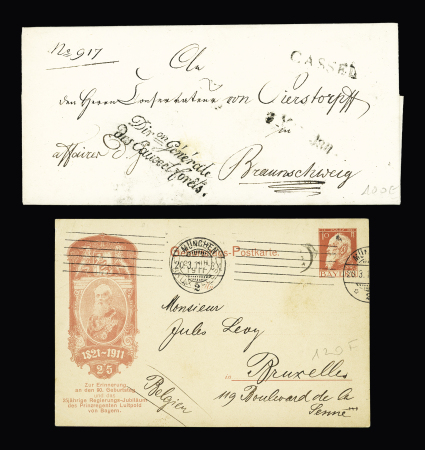 No 917
CASSEL
An
den Herrn Conservateur von Sierstorpff
zu
Dir.on Générale
des Eaux et forêts.
Braunschweig
100F
MÜNCHEN
1911
Postkarte.
10
BAYERN
1821-1911
25
Zur Erinnerung
an den 90. Geburtstag
und das
25jährige Regierungs-Jubiläum
des Prinzregenten Luitpold
von Bayern.
Monsieur
Jules Levy
120F
AN
Bruxelles
119 Boulevard de la
Senne
Belgien